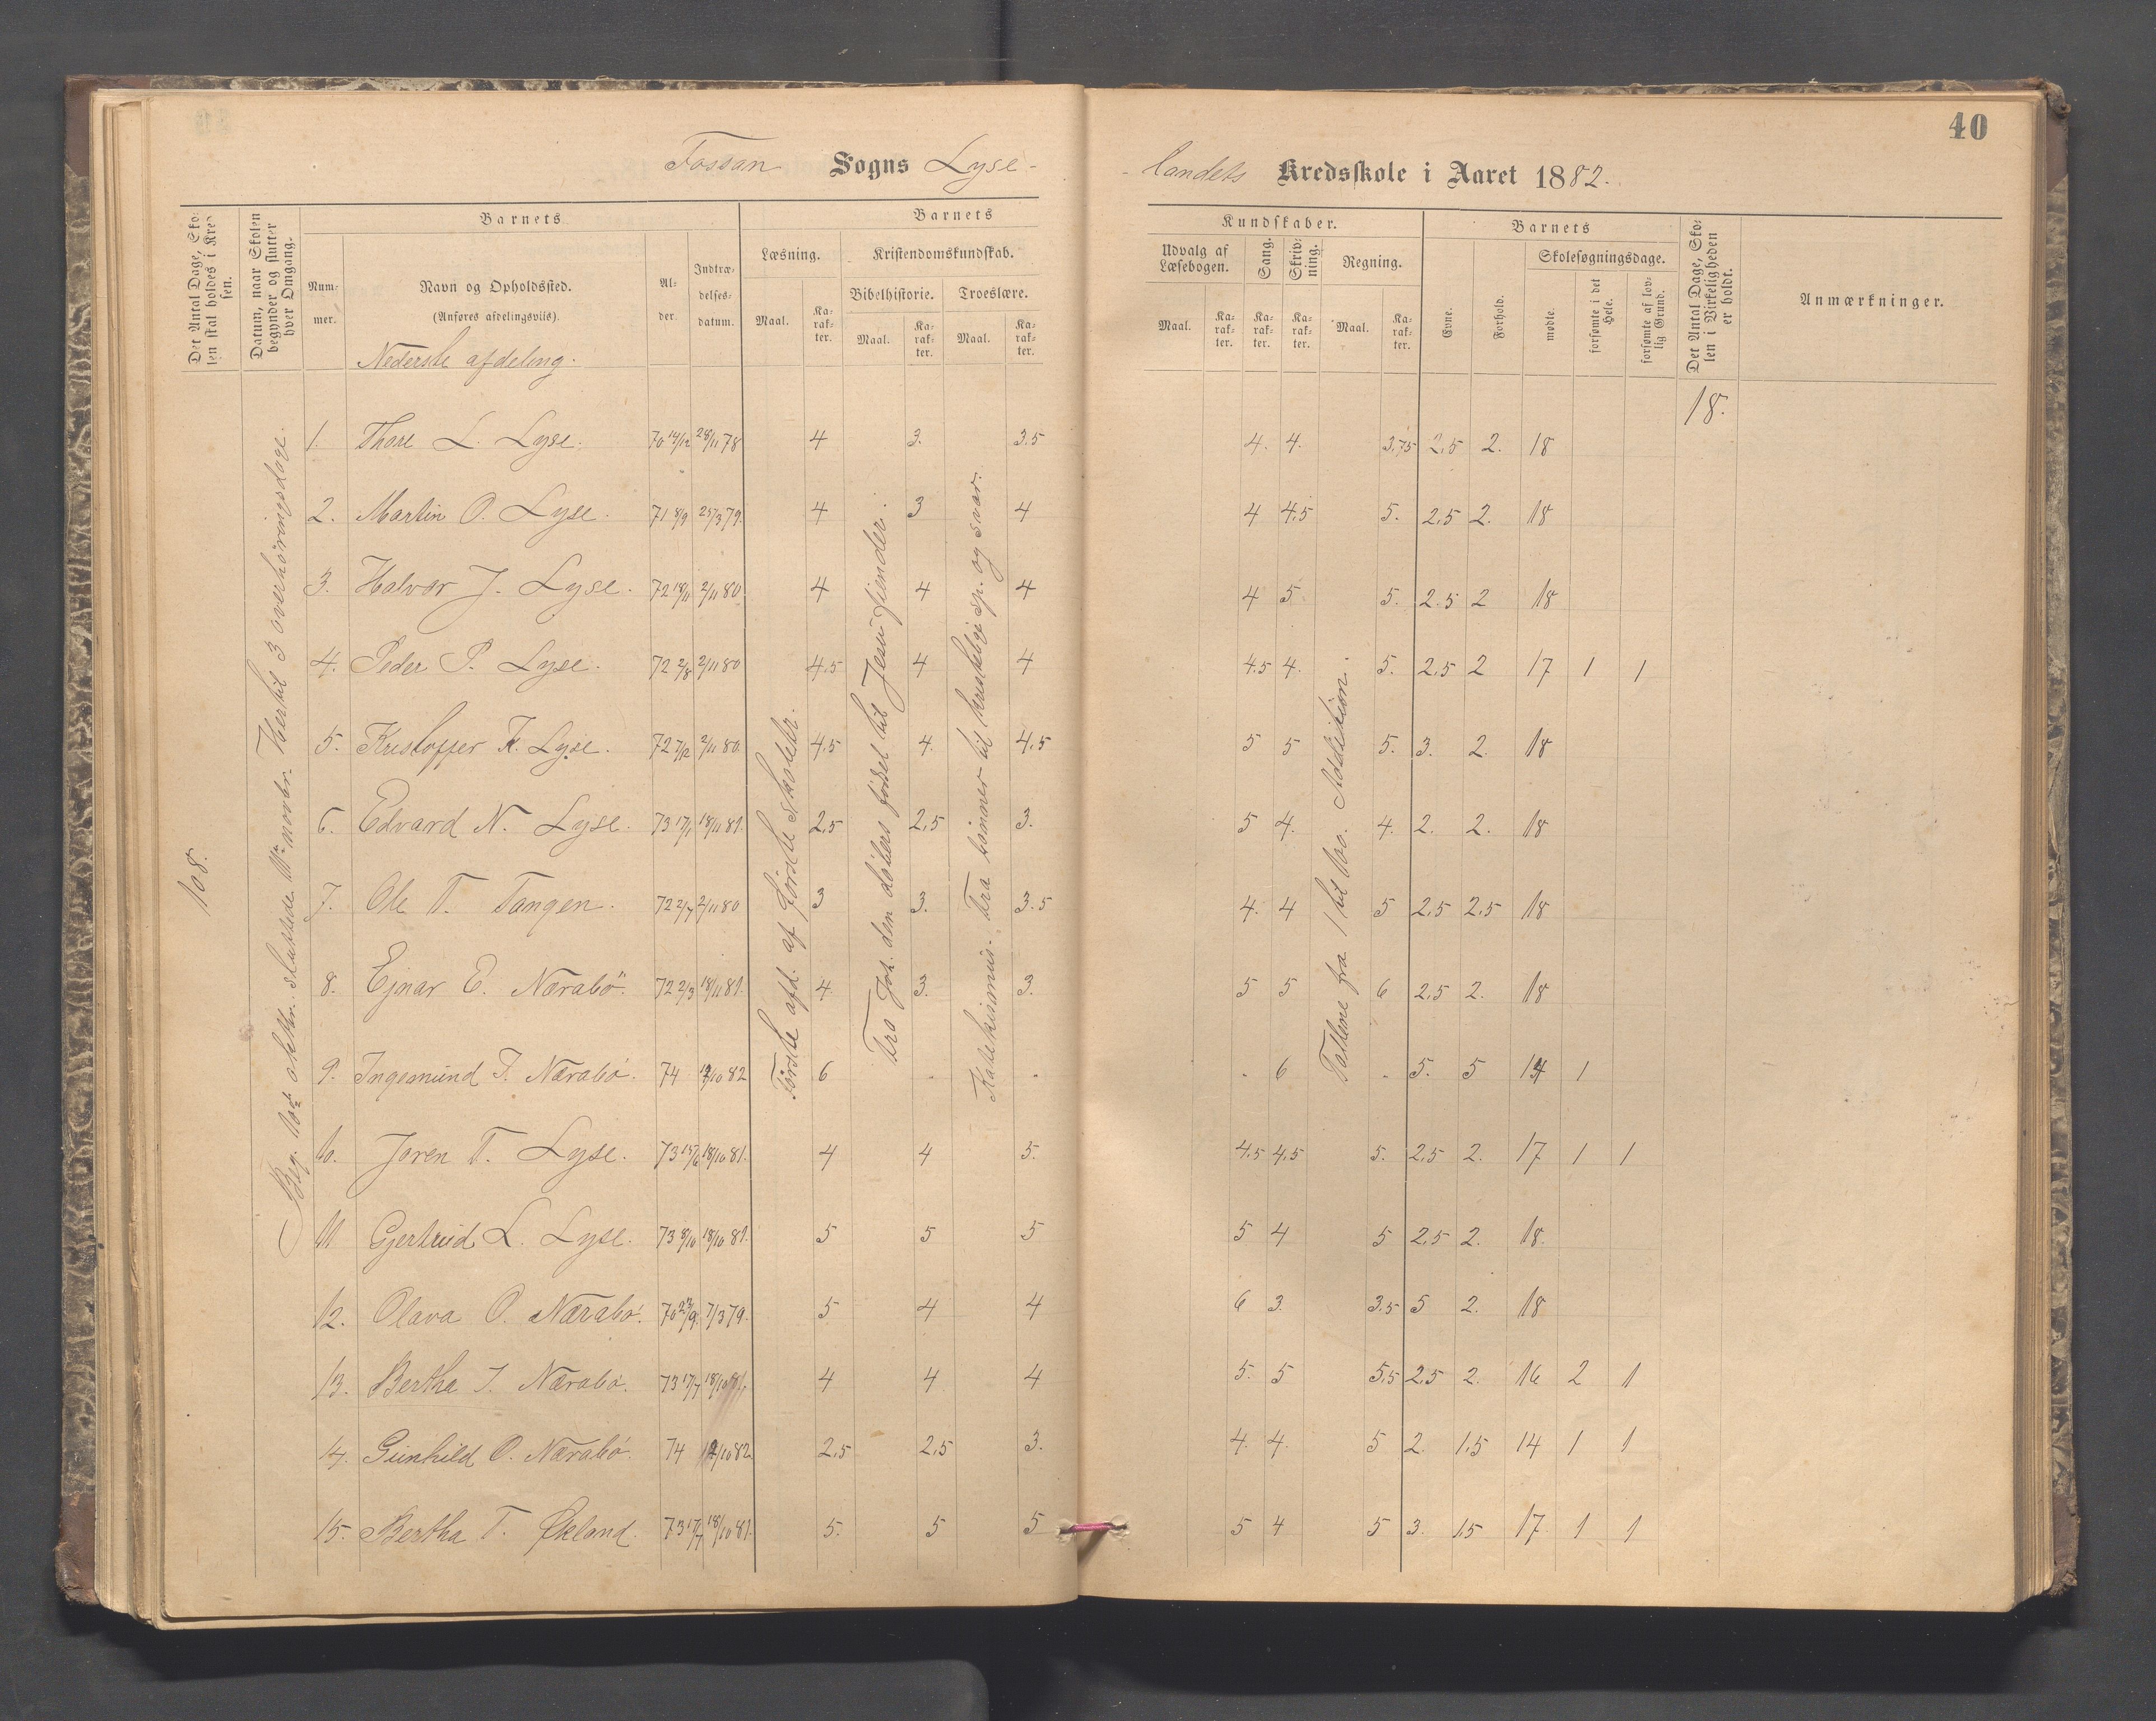 40
Fossan Sogns Lyse-
-landets Kredsskole i Aaret 1882.
Det Antal Dage, Skolen skal holdes i Kredsen.
Datum, naar Skolen begynder og slutter hver Omgang.
Barnets
Nummer.
Navn og Opholdssted.
(Anføres afdelingsviis).
Alder.
Indtrædelsesdatum.
Barnets
Læsning.
Kristendomskundskab.
Bibelhistorie. Troeslære.
Maal. Karakter. Maal. Karakter. Maal. Karakter.
Kundskaber.
Udvalg af Læsebogen.
Sang.
Skrivning.
Regning.
Maal. Karakter. Karakter. Karakter. Maal. Karakter.
Barnets
Evne.
Forhold.
Skolesøgningsdage.
mødte.
forsømte i det Hele.
forsømte af lovlig Grund.
Det Antal Dage, Skolen i Virkeligheden er holdt.
Anmærkninger.
Nederste afdeling.
108.
18.
1. Thore L. Lyse. 70 14/12 28/11 78 4 3. 3.5 4. 4. 3,75 2,5 2. 18
2. Martin O. Lyse. 71 8/9 25/3 79. 4 3 4 4 4,5 5. 2,5 2. 18
3. Halvor J. Lyse. 72 18/11 2/11 80 4 4 4 4 5 5. 2.5 2 18
4. Peder P. Lyse. 72 2/8 2/11 80 4.5 4 4 4.5 4. 5. 2,5 2 17 1 1
5. Kristoffer K. Lyse. 72 7/12 2/11 80. 4.5 4. 4,5 5 5 5. 3. 2. 18
6. Edvard N. Lyse. 73 17/1 18/11 81. 2,5 2,5 3. 5 4. 4. 2. 2. 18
7. Ole T. Tangen. 72 2/7 2/11 80 3 3. 3.5 4. 4 5 2,5 2,5 18
8. Ejnar E. Nærabö. 72 2/3 18/11 81. 4. 3. 3. 5 5 6 2,5 2. 18
9. Ingemund T. Nærabö. 74 /10 82 6 . . . 6 . 5. 5 14 1
10. Joren T. Lyse. 73 15/6 18/10 81. 4 4 5. 4.5 4.5 5. 2,5 2. 17 1 1
11 Gjertrud L. Lyse. 73 8/10 18/10 81. 5 5 5 5 4 5 2,5 2. 18.
12. Olava O. Nærabö. 70 23/9. 7/3 79. 5 4 4 6 3. 3.5 5 2. 18
13. Bertha I. Nærabö. 73 17/7 18/10 81. 4 4 4 5. 5 5,5 2,5 2. 16 2 1
14. Gunhild O. Nærabö. 74 /10 82 2,5 2,5 3. 4. 4. 5 2. 1.5 14 1 1
15. Bertha T. Økland. 73 17/7 18/10 81. 5. 5 5 5 4 5 3. 1.5 17 1 1
Beg. 10de oktbr. sluttede 11te novbr. Hertil 3 overhöringsdage.
Förste afd. af förste skoletr.
Fra Joh. den döbers födsel til Jesu fiender.
Katekismus. Fra bönner til kristelige sp. og svar.
Tallene fra 1 til 100. Addition.